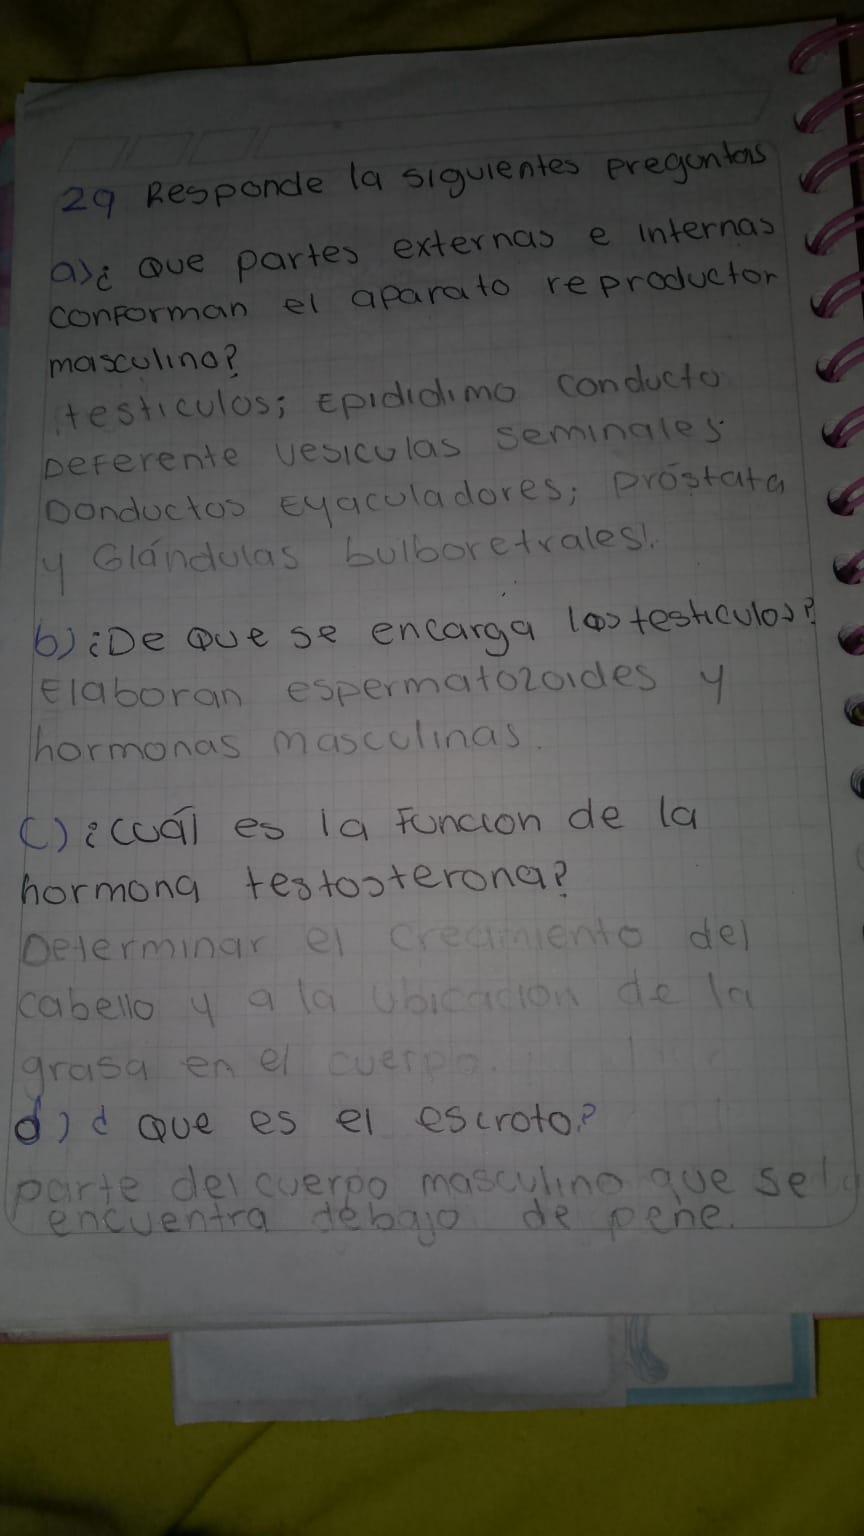 29 Responde la siguientes preguntas
a)¿ Que partes externas e internas
conforman el aparato reproductor
masculino?
testiculos; Epididimo conducto
Deferente vesiculas seminales
Donductos Eyaculadores; próstata
y Glándulas bulboretrales.
b) ¿De Que se encarga los testiculos?
Elaboran espermatozoides y
hormonas masculinas.
c) ¿cuál es la Funcion de la
hormona testosterona?
Determinar el crecimiento del
cabello y a la ubicacion de la
grasa en el cuerpo.
d) ¿ Que es el escroto?
parte del cuerpo masculino que se
encuentra debajo de pene.